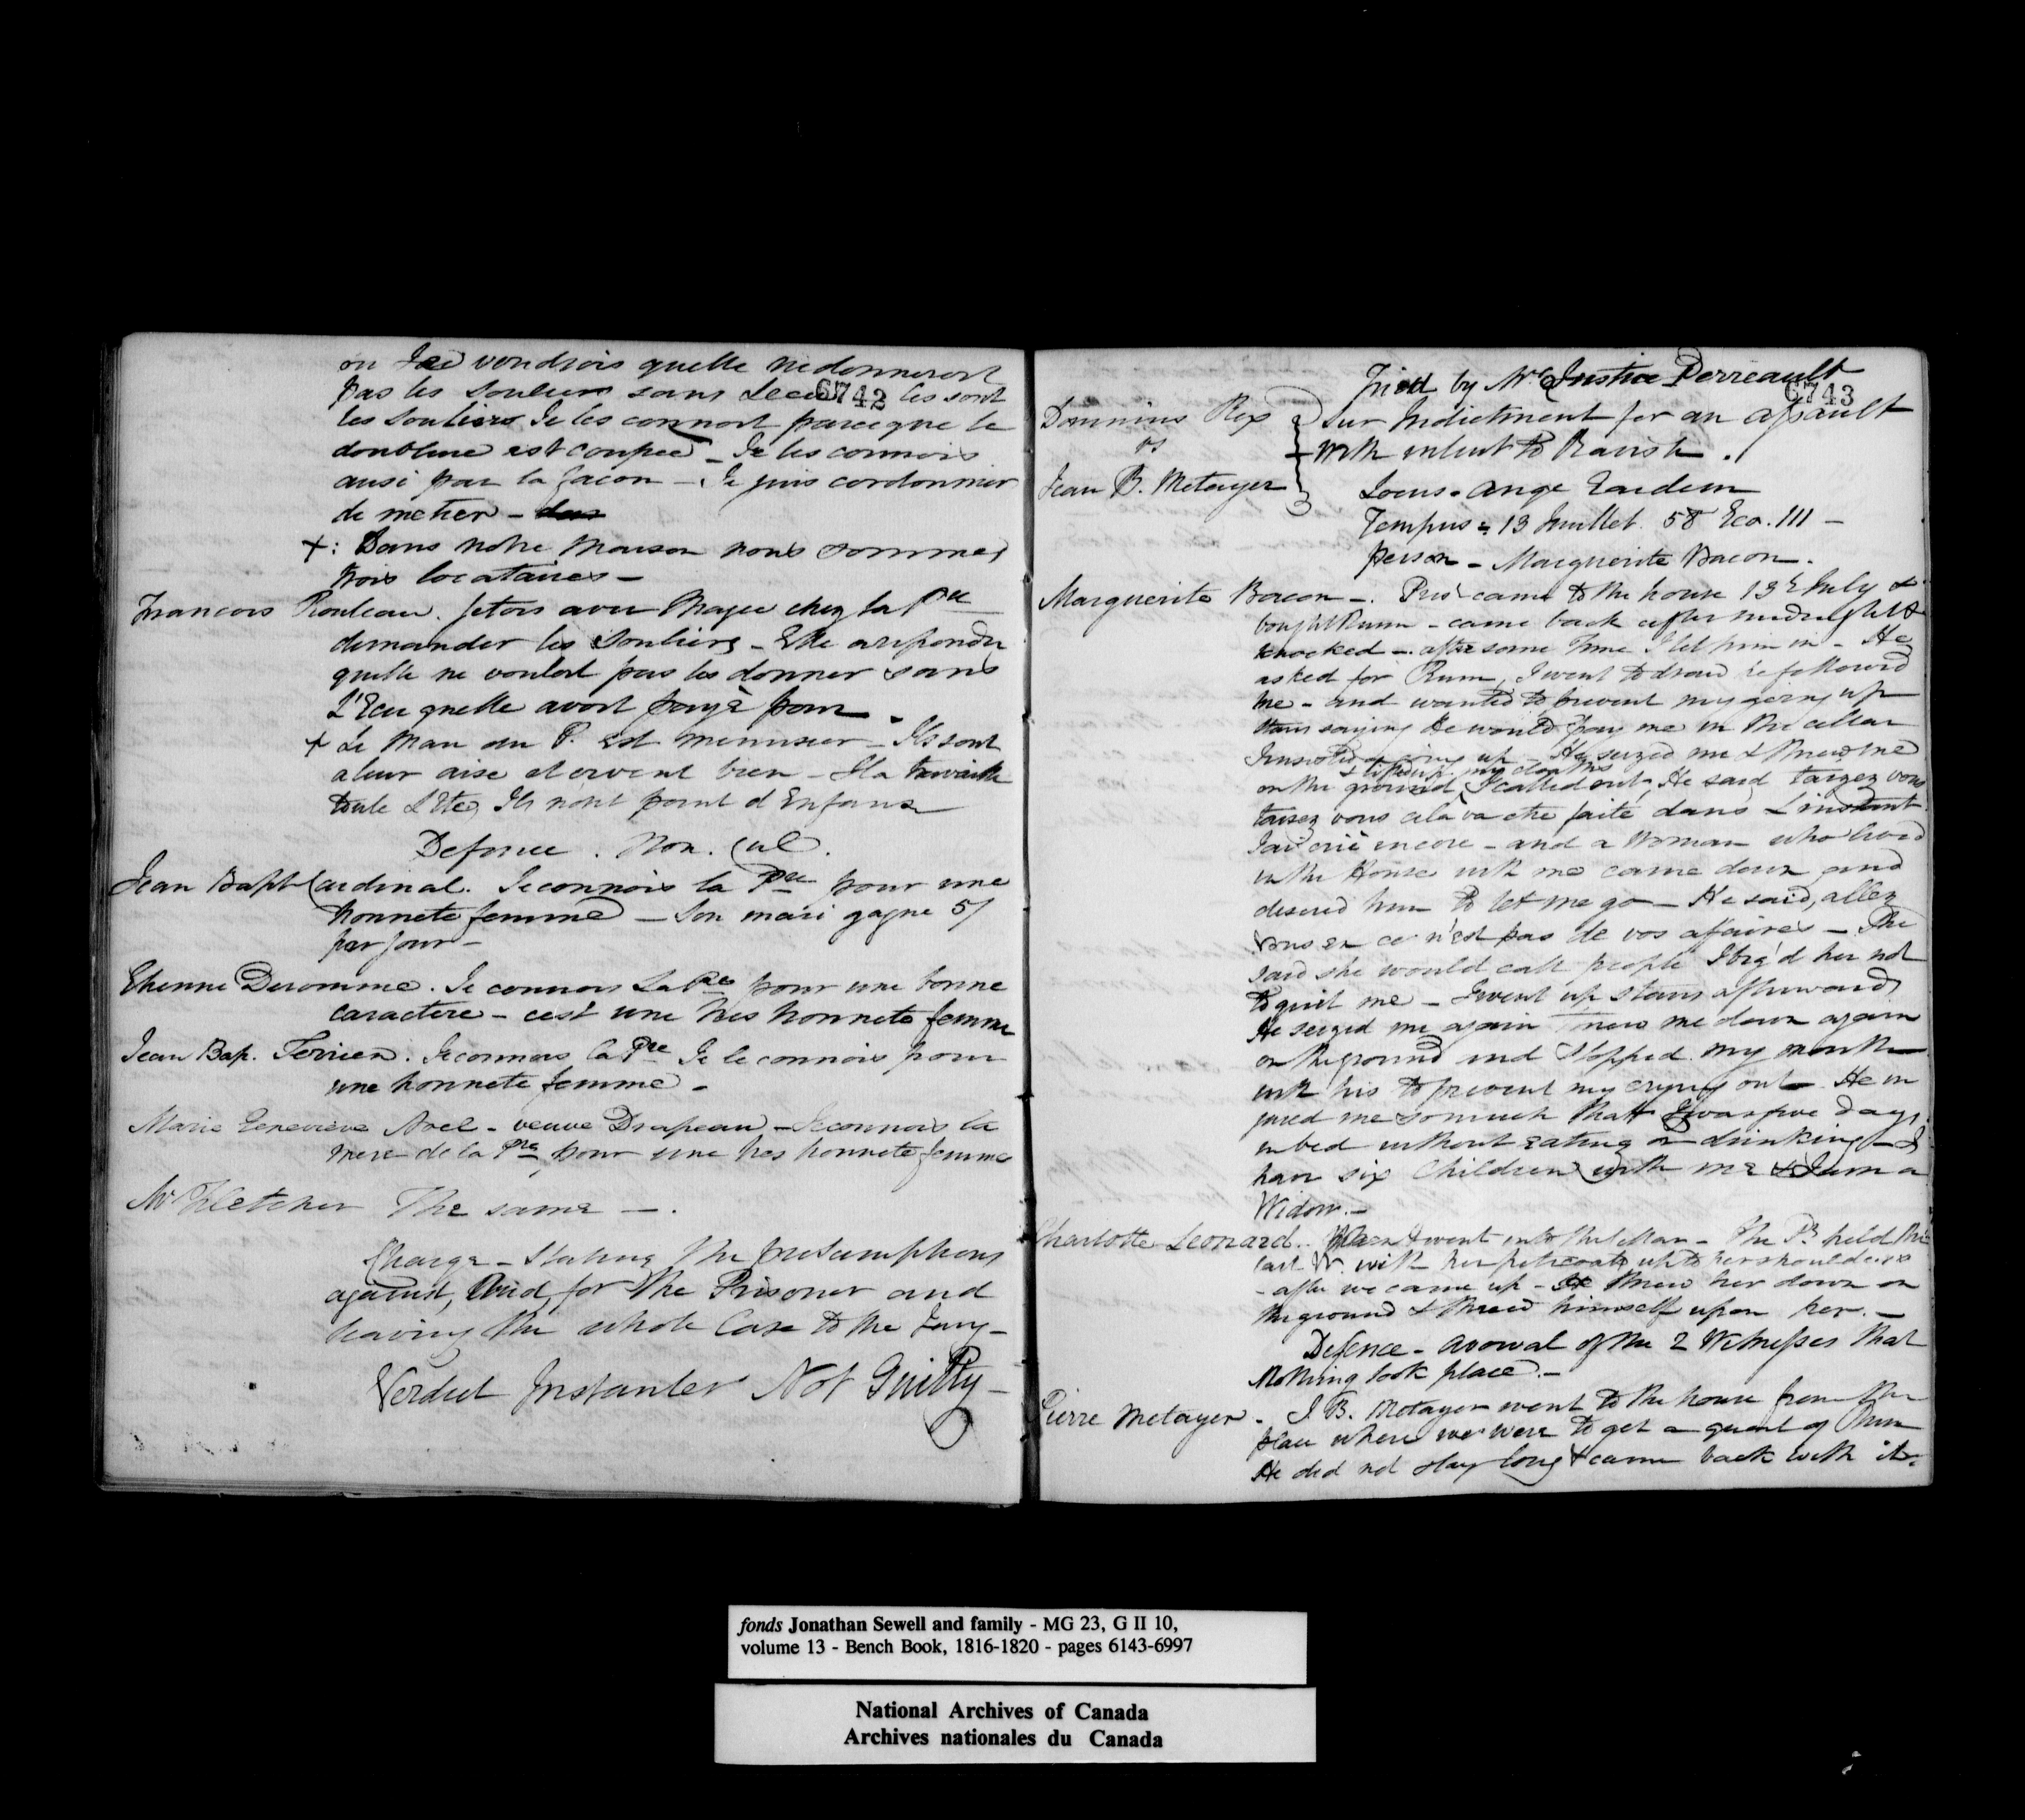 on
vendrois quelle ne donneroit
pas les souliers sans 6742 les sont
les souliers Je les connoit parceque le
doublure est coupée - Je les connois
ausi par la facon - Je suis cordonnier
de metier -
+: Dans notre maison nous sommes
trois locataires -
Francois Rouleau. Jetois avec chez la Pre
demander les souliers - Elle a repondu
quelle ne vouloit pas les donner sans
L'Ecu quelle avoit payé pour -
+ Le Mari du P. est menuisier - Ils sont
a leur aise et vivent bien - Il a travaillé
toute L'Eté, Ils n'ont point d'Enfans
Defence. Non. Cul.
Jean Bapt Cardinal. Je connois la Pre pour une
honnete femme - Son mari gagne 5/
par jour -
Etienne Deromme. Je connois La Pre pour une bonne
caractere - c'est une tres honnete femme
Jean Bap. Terrien. Je connois la Pre Je le connois pour
une honnete femme -
Marie Genevieve Noel - veuve Drapeau - Je connois la
mere de la Pre pour une tres honnete femme
Mr Fletcher The same -.
Charge - Stating the presumptions
against, and for the Prisoner and
leaving the whole Case to the Jury -
Verdict Instanter Not Guilty -
Tried by Mr Justice Perreault
6743
Dominus Rex
vs
Jean B. Metayer
Sur Indictment for an assault
with intent to Ravish.
Locus - Ange Gardien
Tempus = 13 Juillet. 58 Geo. III -
person - Marguerite Bacon.
Marguerite Bacon -. Pris came to the house 13th July &
bought Rum - came back after midnight &
knocked - after some Time I let him in - He
asked for Rum, I went to draw he followed
me - and wanted to prevent my going up
stairs saying He would pay me in the cellar
I insisted on going up - He seized me & threw me
& lifted up my cloaths
on the ground, I called out, He said taizez vous
taisez vous cela va etre faite dans L'instant
J'ai crié encore - and a Woman who lived
in the House with me came down and
desired him to let me go - He said, allez
vous en ce n'est pas de vos affaires - She
said she would call people I beg'd her not
to quit me - I went up stairs afterwards
He seized me again Threw me down again
on the ground and stopped my mouth
with his to prevent my crying out - He in
jured me so much that I was five days
in bed without eating or drinking - I
have six Children with me & I am a
Widow. -
Charlotte Leonard. When I went into the Cellar - The Pr held the
last W. with her petticoats up to her shoulders
- after we came up - He threw her down on
the ground & threw himself upon her. -
Defence - avowal of the 2 Witnesses that
Nothing took place. -
Pierre Metayer - J. B. Metayer went to the house from the
place where we were to get a quart of Rum
He did not stay long & came back with it.
fonds Jonathan Sewell and family - MG 23, G II 10,
volume 13 - Bench Book, 1816-1820 - pages 6143-6997
National Archives of Canada
Archives nationales du Canada